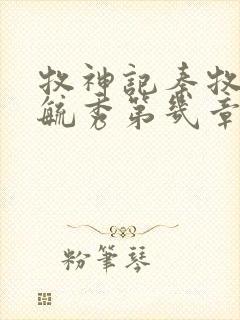 牧神記秦牧
毓秀第幾章
粉筆琴